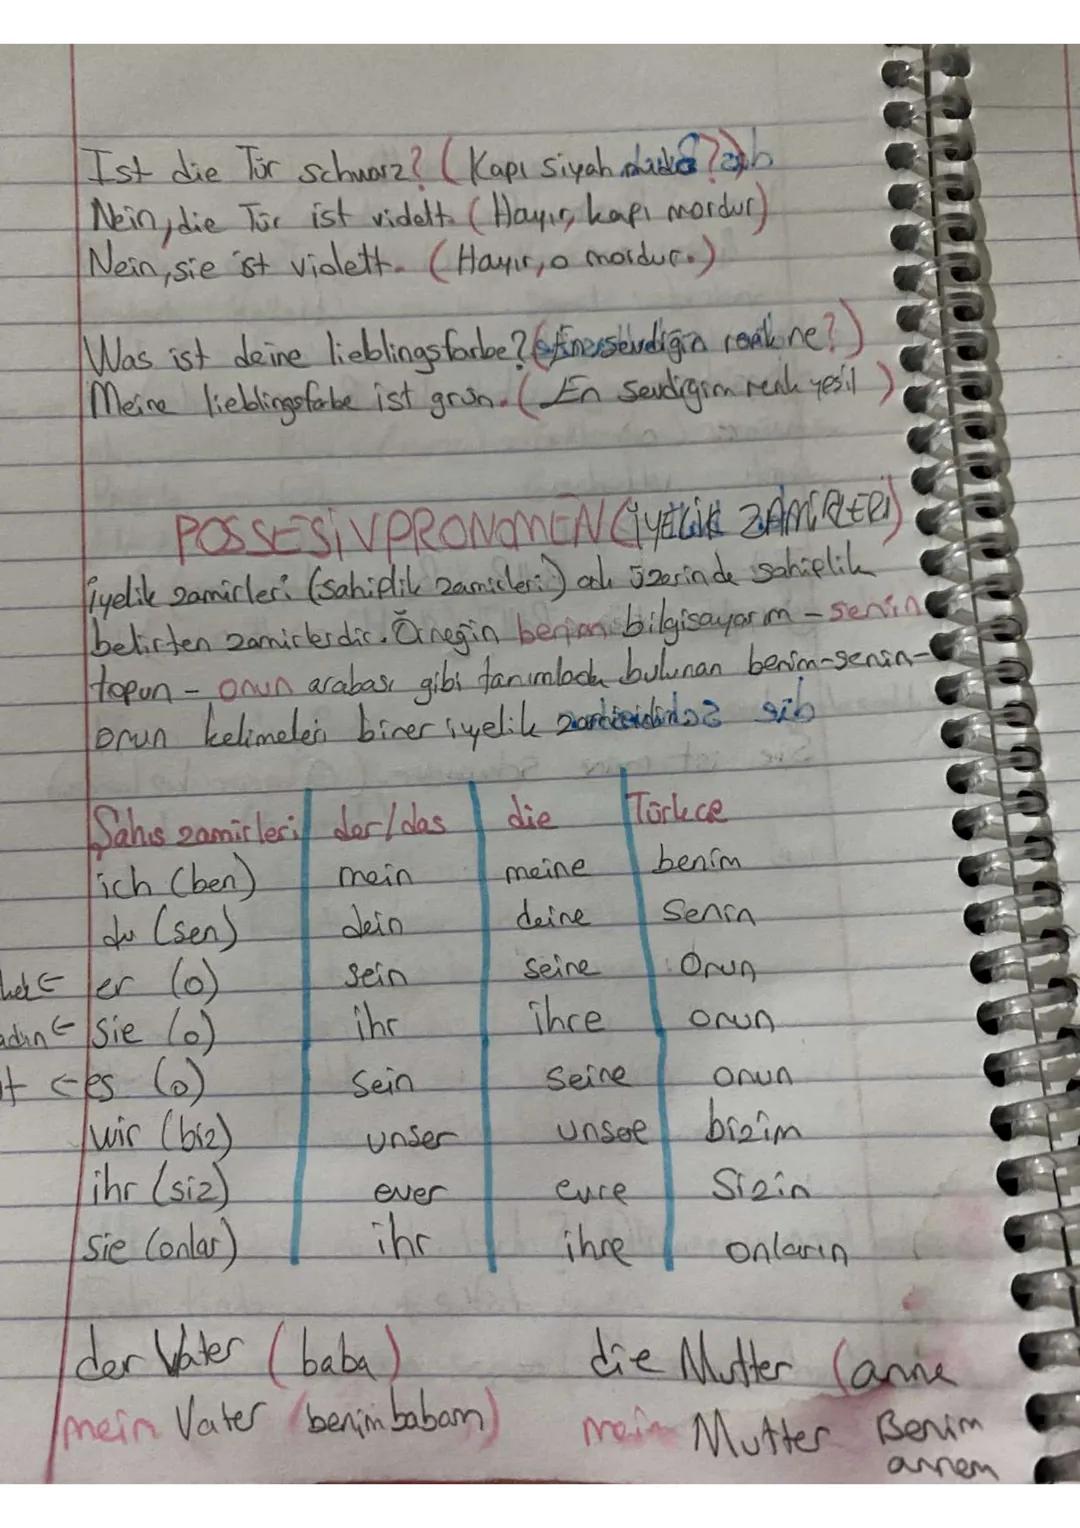 Ist die Tür schwarz? (Kapı siyah
Nein, die Tür ist videlt. (Hayır, kapı mordur)
Nein, sie ist violett. (Hayır, o mordur.)
Was ist deine lieblingsfarbe? ne?)
Meine lieblingsfarbe ist grün. (En sevdiğim renk yeşil)
POSSESİVPRONOMEN (İYELİK ZAMİRLERİ)
iyelik zamirleri (sahiplik zamirleri) üzerinde sahiplik
belirten zamirlerdir. Örneğin benim bilgisayarım - senin
topun - onun arabası gibi tanımlada bulunan benim-senin-
onun kelimeleri birer iyelik
Şahıs zamirleri der/das die Türkçe
ich (ben) mein meine benim
du (sen) dein deine Senin
er (o) sein seine Onun
adın ← Sie (o) ihr ihre onun
← es (o) Sein Seine onun
wir (biz) unser unsere bizim
ihr (siz) euer eure Sizin
Sie (onlar) ihr ihre onların
der Vater (baba) die Mutter (anne
mein Vater (benim babam) mein Mutter Benim
annem